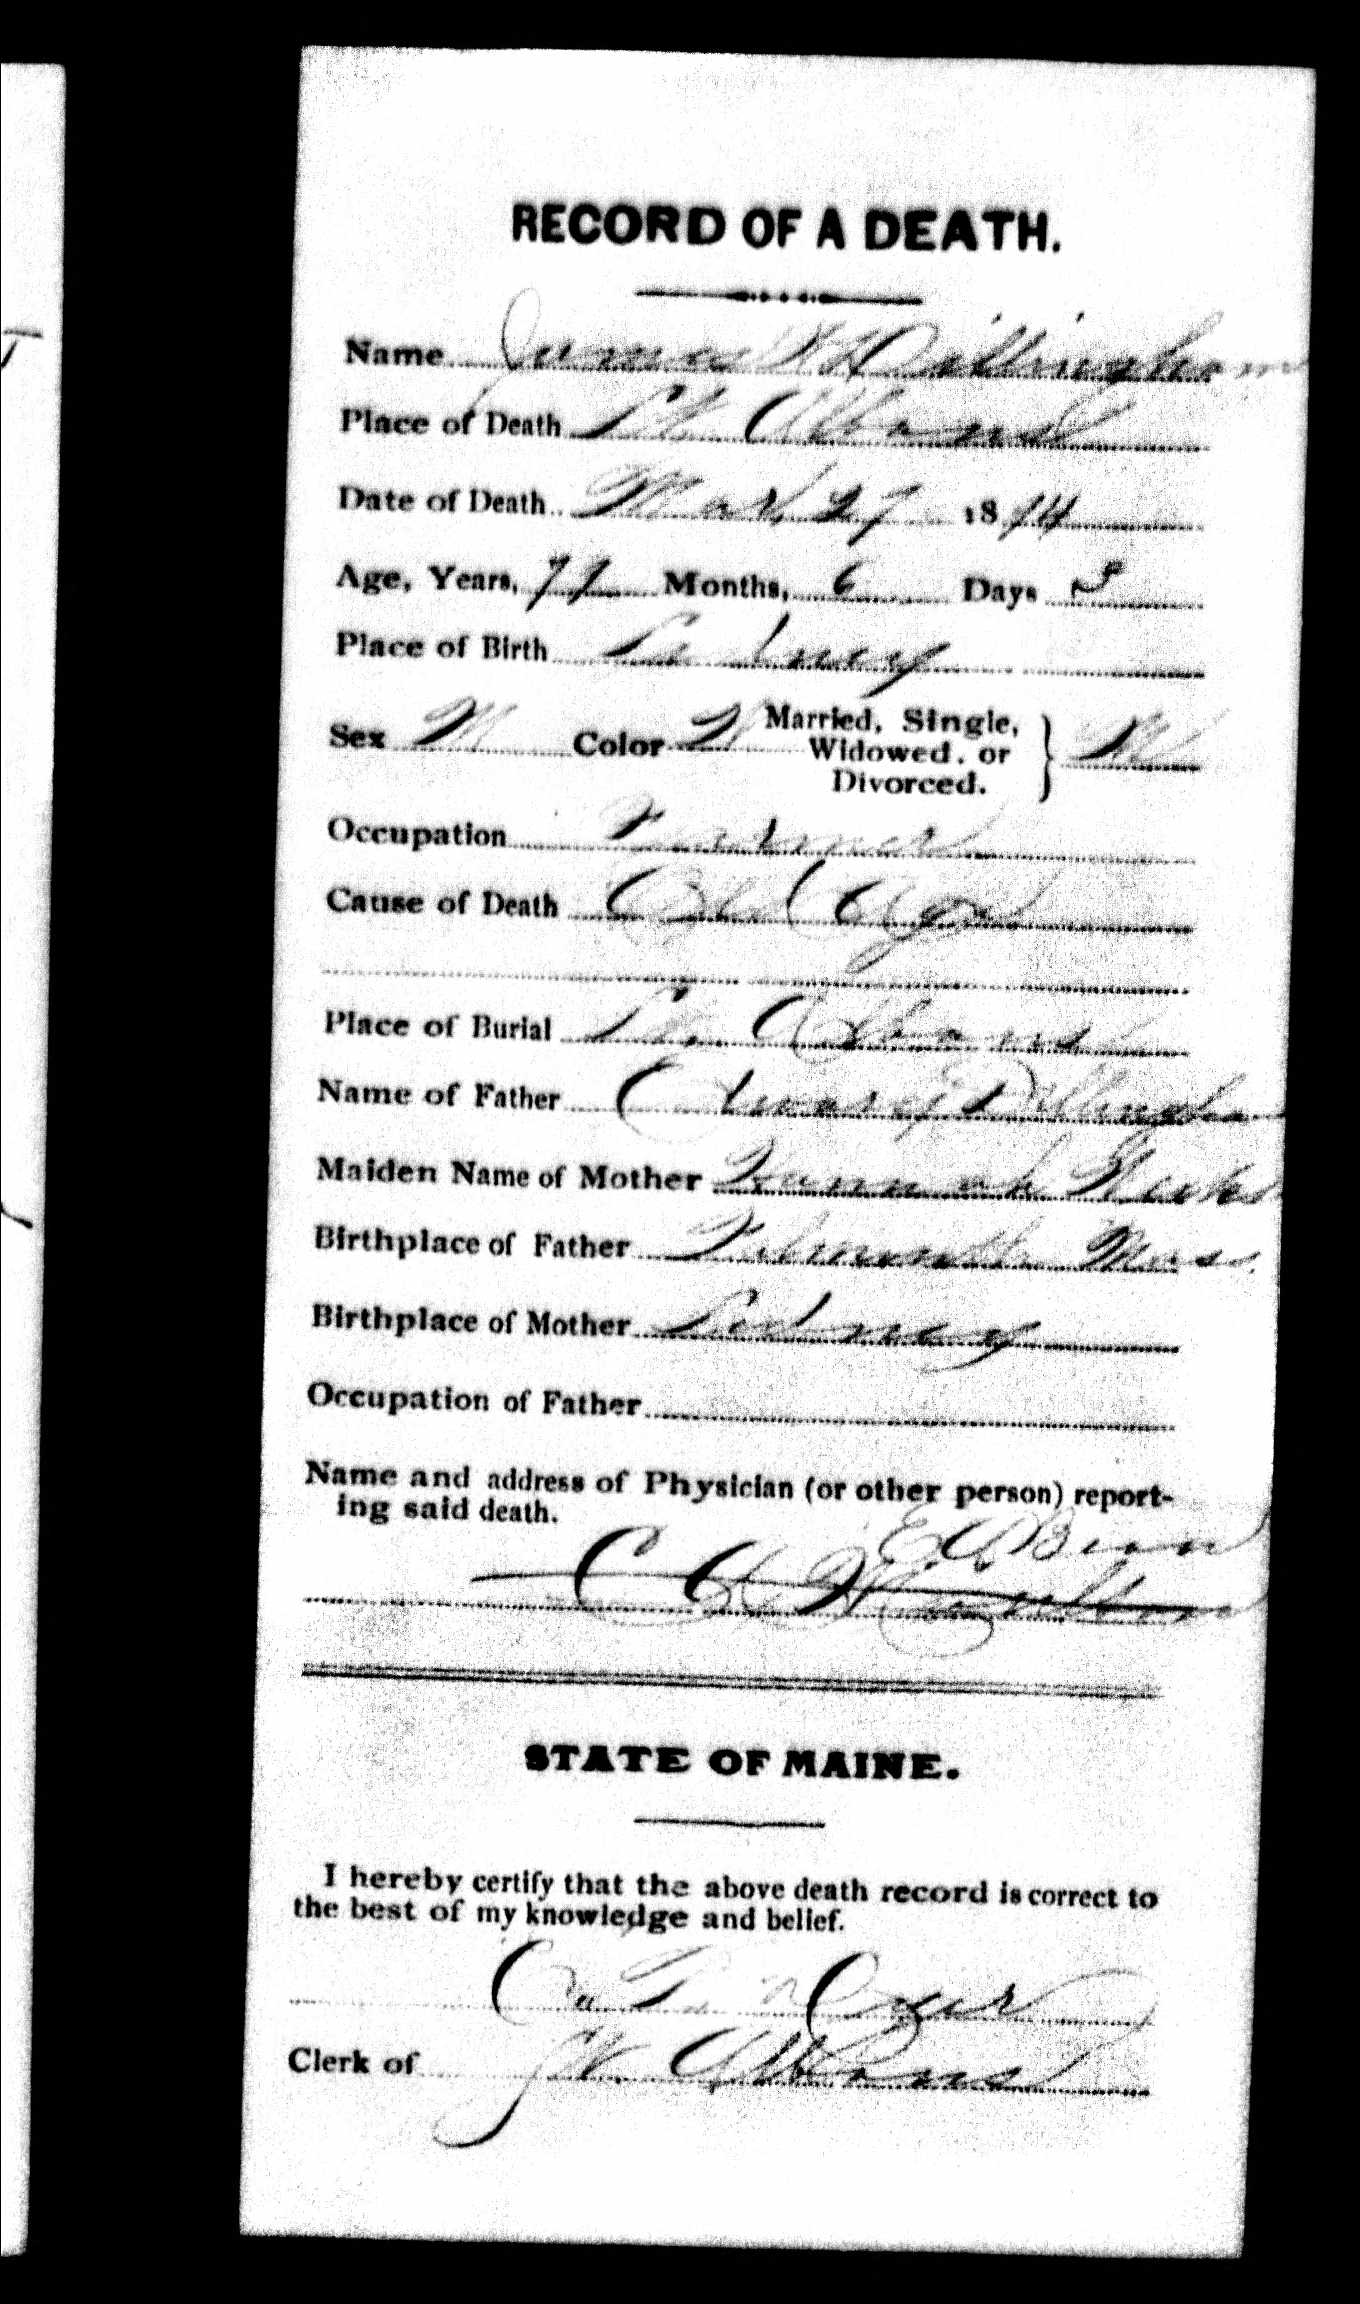 RECORD OF A DEATH.
Name James H Dillingham
Place of Death St. Albans
Date of Death Mar. 27 1894
Age, Years, 77 Months, 6 Days 5
Place of Birth Sidney
Sex M Color W Married, Single, Widowed, or Divorced. } M
Occupation Farmer
Cause of Death Old Age
Place of Burial St. Albans
Name of Father Dillingham
Maiden Name of Mother Hannah Weeks
Birthplace of Father Falmouth Mass.
Birthplace of Mother Sidney
Occupation of Father
Name and address of Physician (or other person) report-
ing said death.
E A Bean
C A Moulton
STATE OF MAINE.
I hereby certify that the above death record is correct to
the best of my knowledge and belief.
Clerk of St. Albans